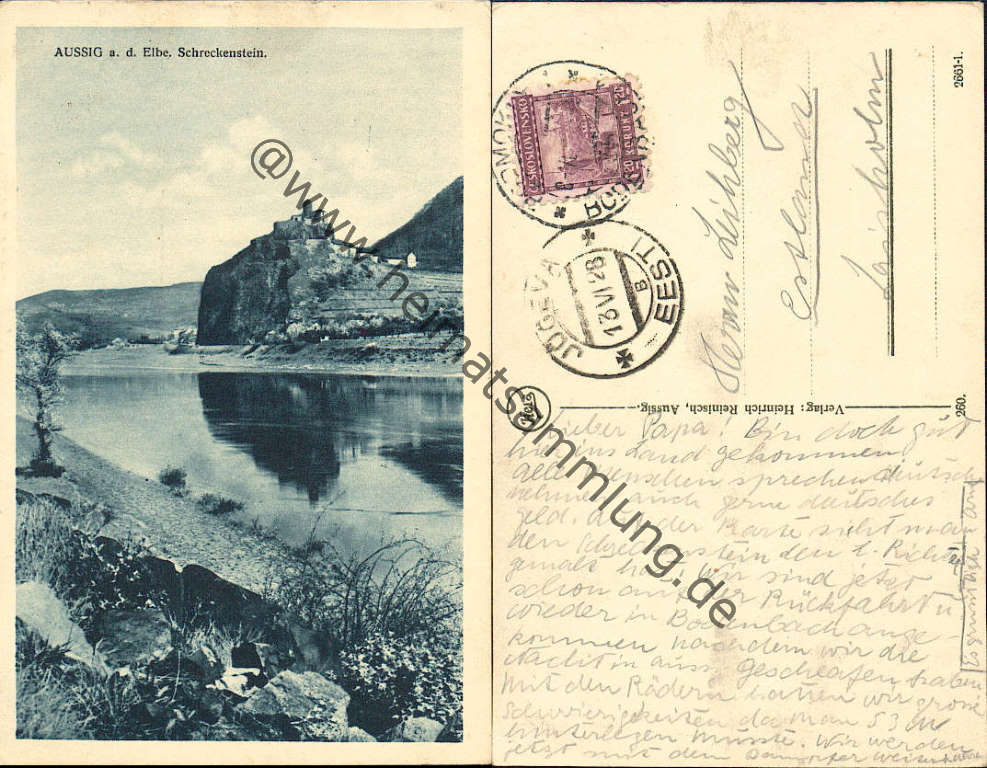 AUSSIG a. d. Elbe. Schreckenstein.
@www.heimatsammlung.de
ČESKOSLOVENSKO
20
PODMOKLY
BODENBACH
JÕGEVA
13 VI 28
B
EESTI
Herrn
Estland
2661-1.
260.
Verlag: Heinrich Reinisch, Aussig.
Lieber Papa! Bin doch gut
hier ins Land gekommen
alle Menschen sprechen deutsch
nehmen auch gerne deutsches
Geld. Auf der Karte sieht man
den Schreckenstein den L. Richter
gemalt hat. Wir sind jetzt
schon auf der Rückfahrt u
wieder in Bodenbach ange-
kommen nachdem wir die
Nacht in Auss. geschlafen haben
Mit den Rädern hatten wir große
Schwierigkeiten da man 53 M
hinterlegen musste. Wir werden
jetzt mit dem Dampfer